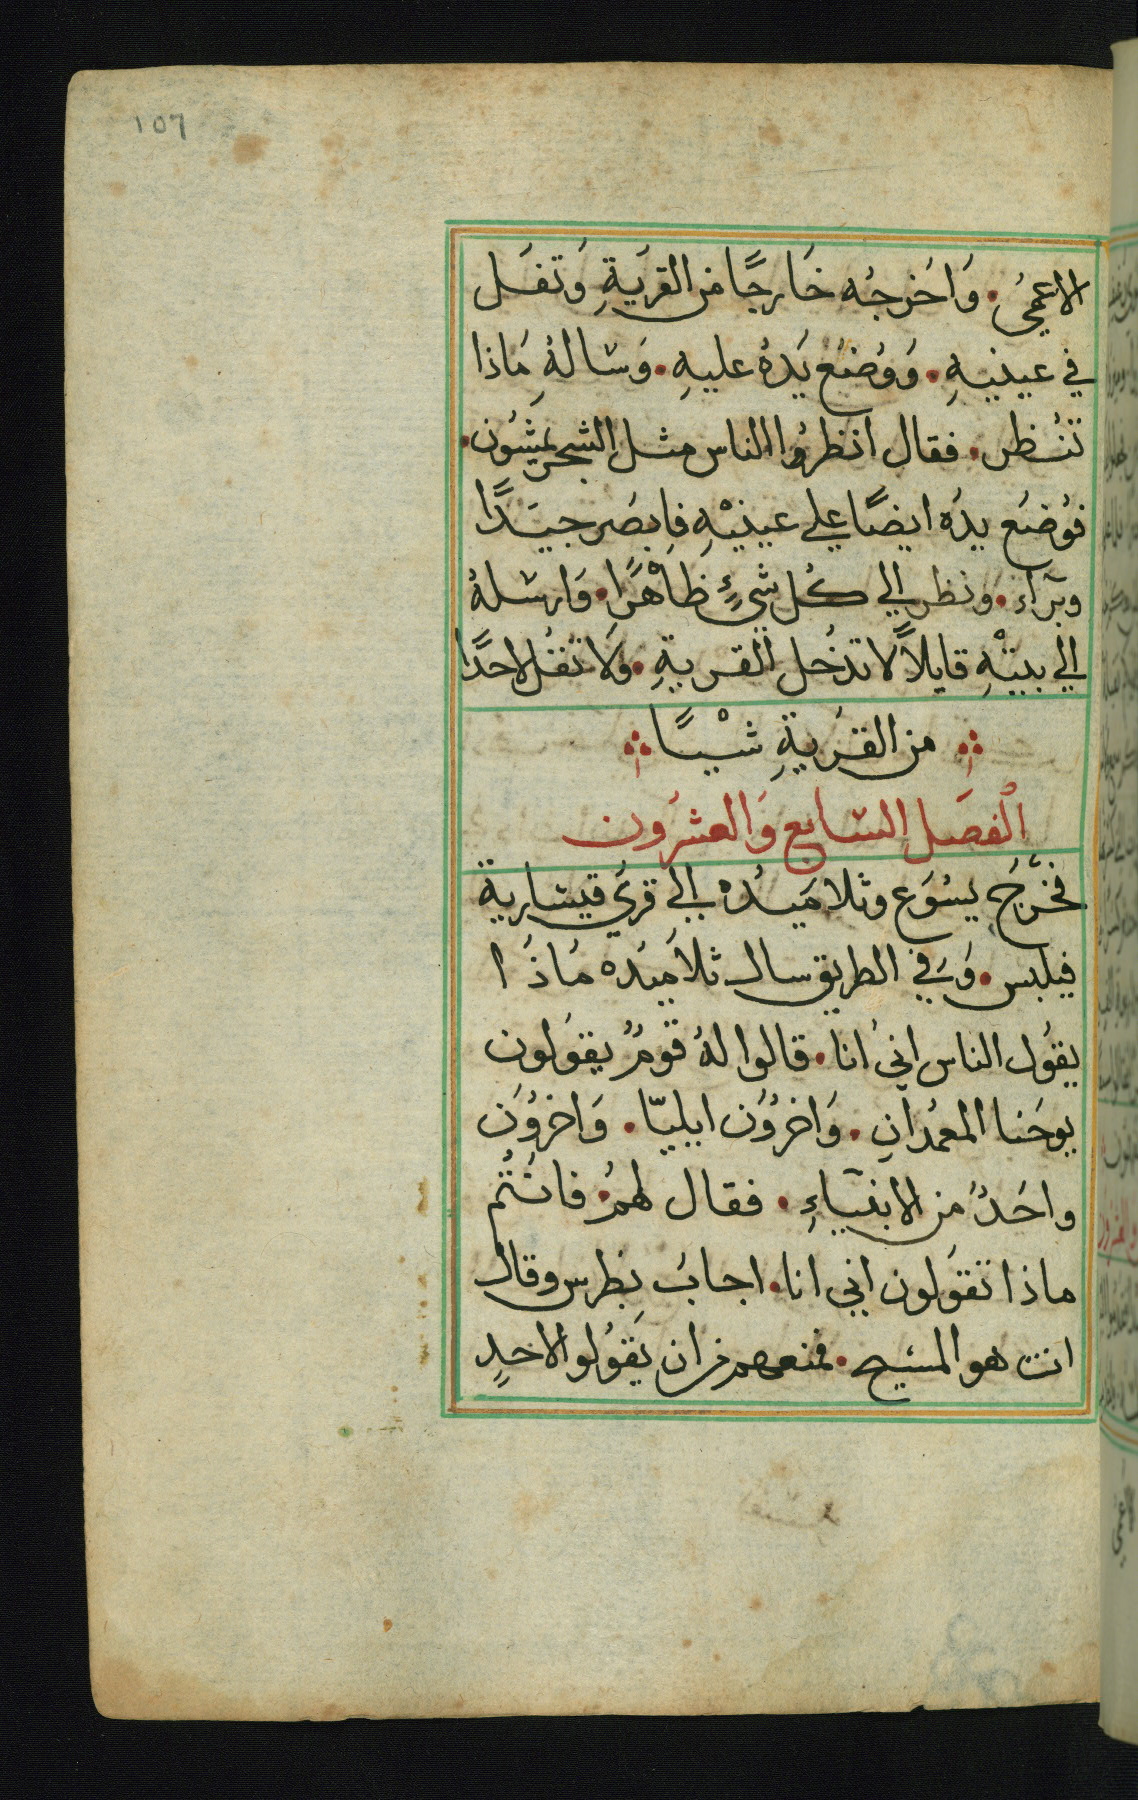 ١٥٦
الاعمىُ. وَاخرجُه خَارجًا من القريَةِ وَتفَل
في عينيهِ. وَوُضَع يَدهُ عليهِ. وَسَالهُ مَاذا
تنُظر. فقال انظرُوا الناس مثل الشجر يمشُون.
فوُضَع يدَه ايضًا علي عينيْهِ فابصَر جيَدًّا
وبرَآء. وَنظر الي كُل شيءٍ ظاهْرًا. وَارسَلهُ
الي بيتْهِ قايلاً لا تدخُل القريةِ. وَلا تقُل لاحدًا
من القرُيةِ شيْيًا
الفصَل السَابع وَالعشرَون
فخرَجَ يسُوَع وتلاميَدُه الي قري قيسَارية
فيلبس. وَفي الطريق سال تلاميَدَه مَاذَا
يقوُل الناس اني انا. قالوا لهُ قومٌ يقوَلون
يوحَنا المعمُدانِ. وَاخرُوَن ايليّا. وَاخروُن
واحَدُ من الانبيَآءِ. فقال لهمُ فانتُم
ماذا تقوَلون اني انا. اجابَ بطرس وقال
انت هو المسَيح. فمنعهم من ان يَقوُلوا لاحدٍ